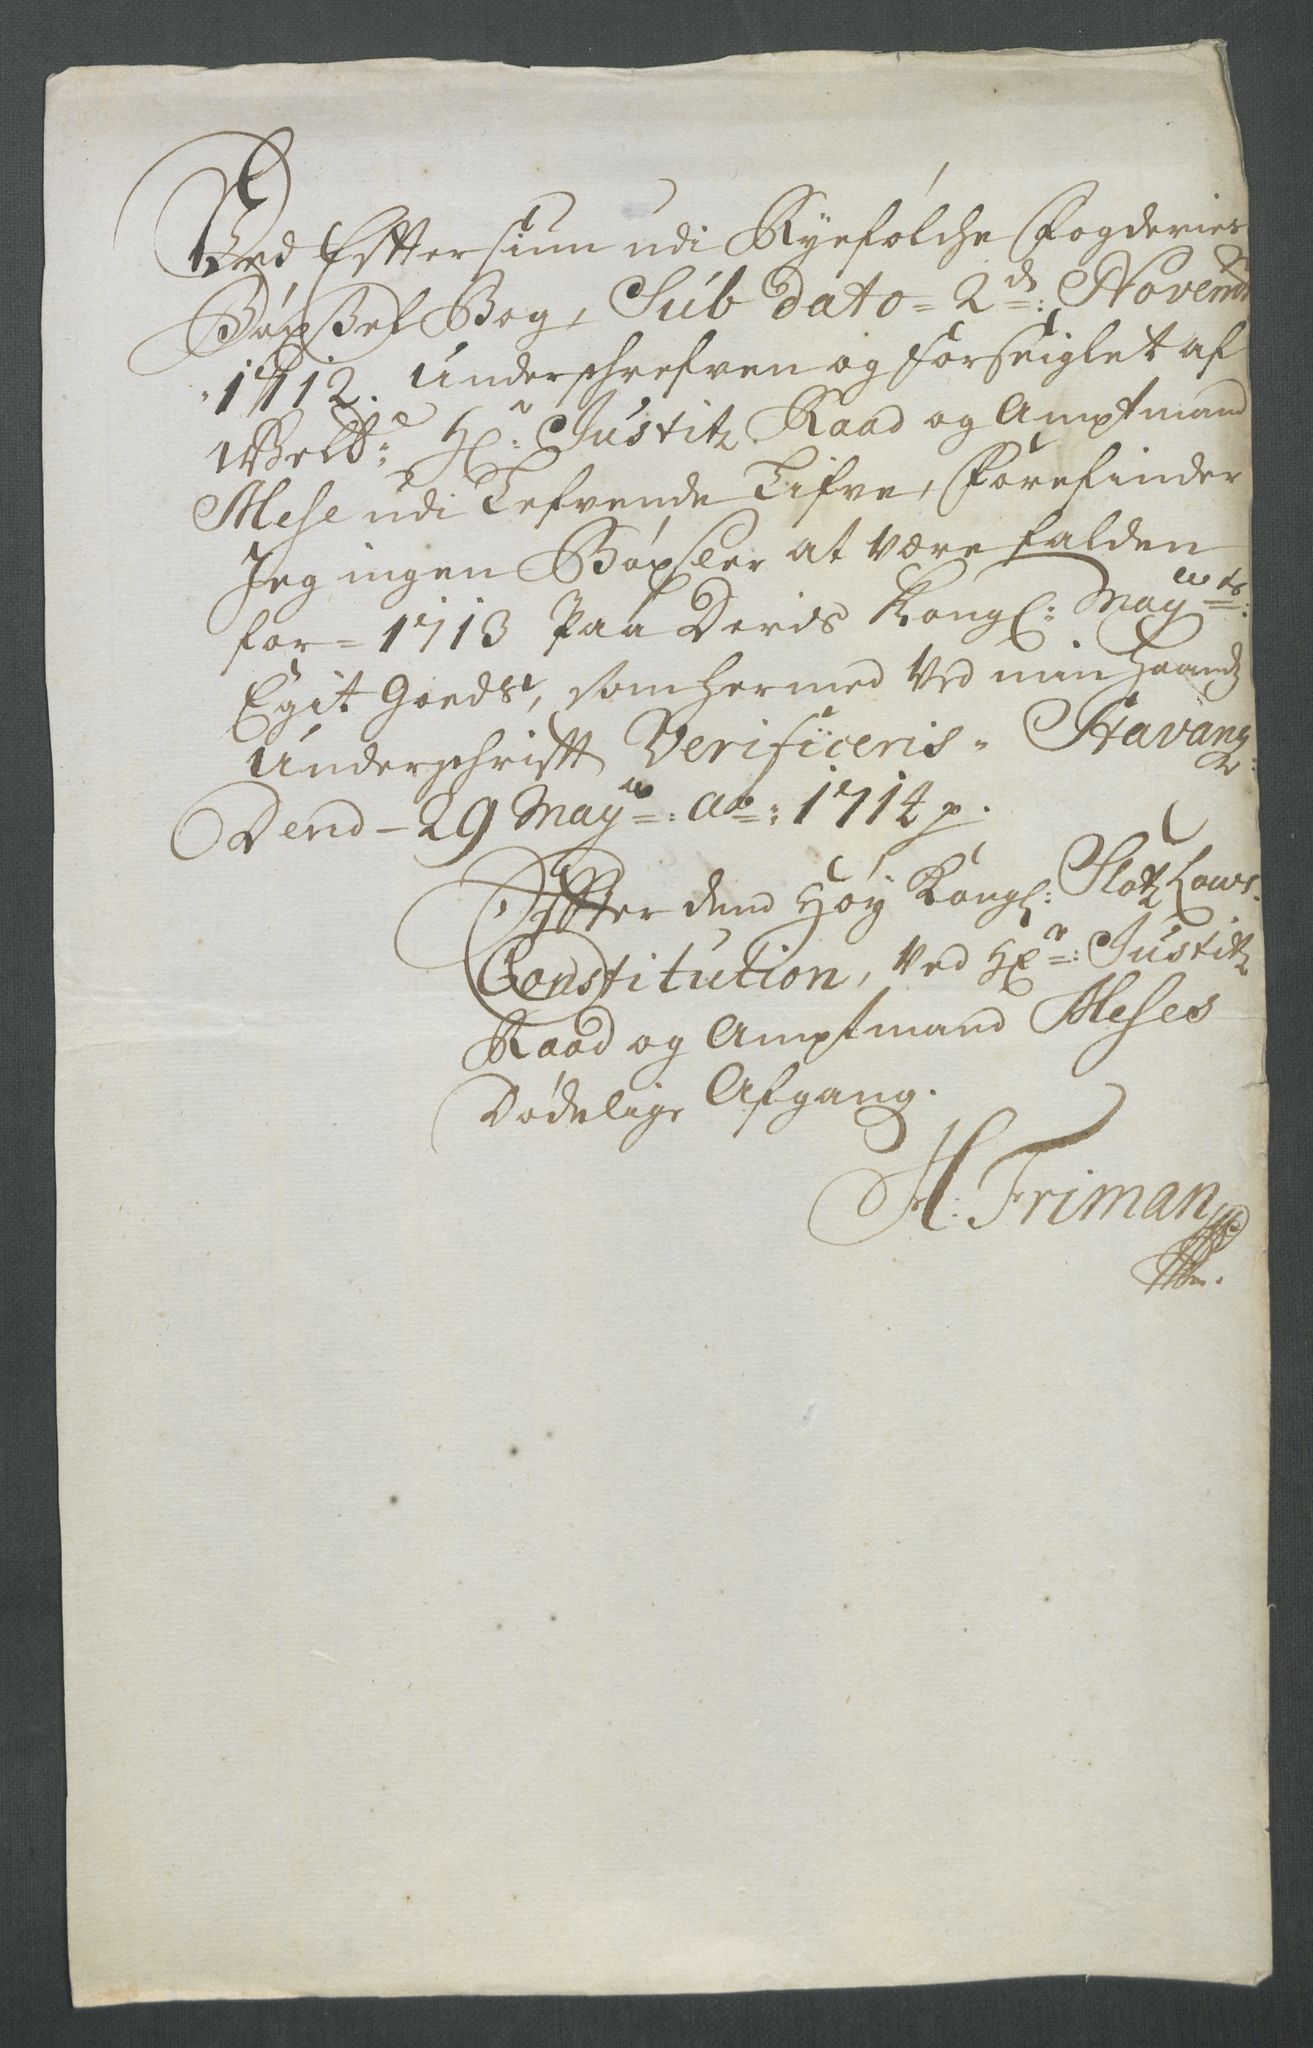 Ved EffterSiun udi Ryefölche Fogderies
Böxsel Bog, Sub Dato = 2de: Novemb
1712. Underschrefven og forseiglet af
Welbe: Hr: Justitz Raad og Amptmand
Mese udi Lefvende Lifve, Forefinder
Jeg ingen Böxseler at være falden
for = 1713 Paa Deris Kongl: Mayts:
Egit Goeds, som hermed Ved min Haands
Underschrifft Verificeris. Stavang:
Dend - 29 May: Ao: 1714 p.
Effter dend Höy Kongl: Slotz Lovs
Constitution, Ved Hr: Justitz
Raad og Amptmand Meses
Dödelige Afgang.
H: Friman